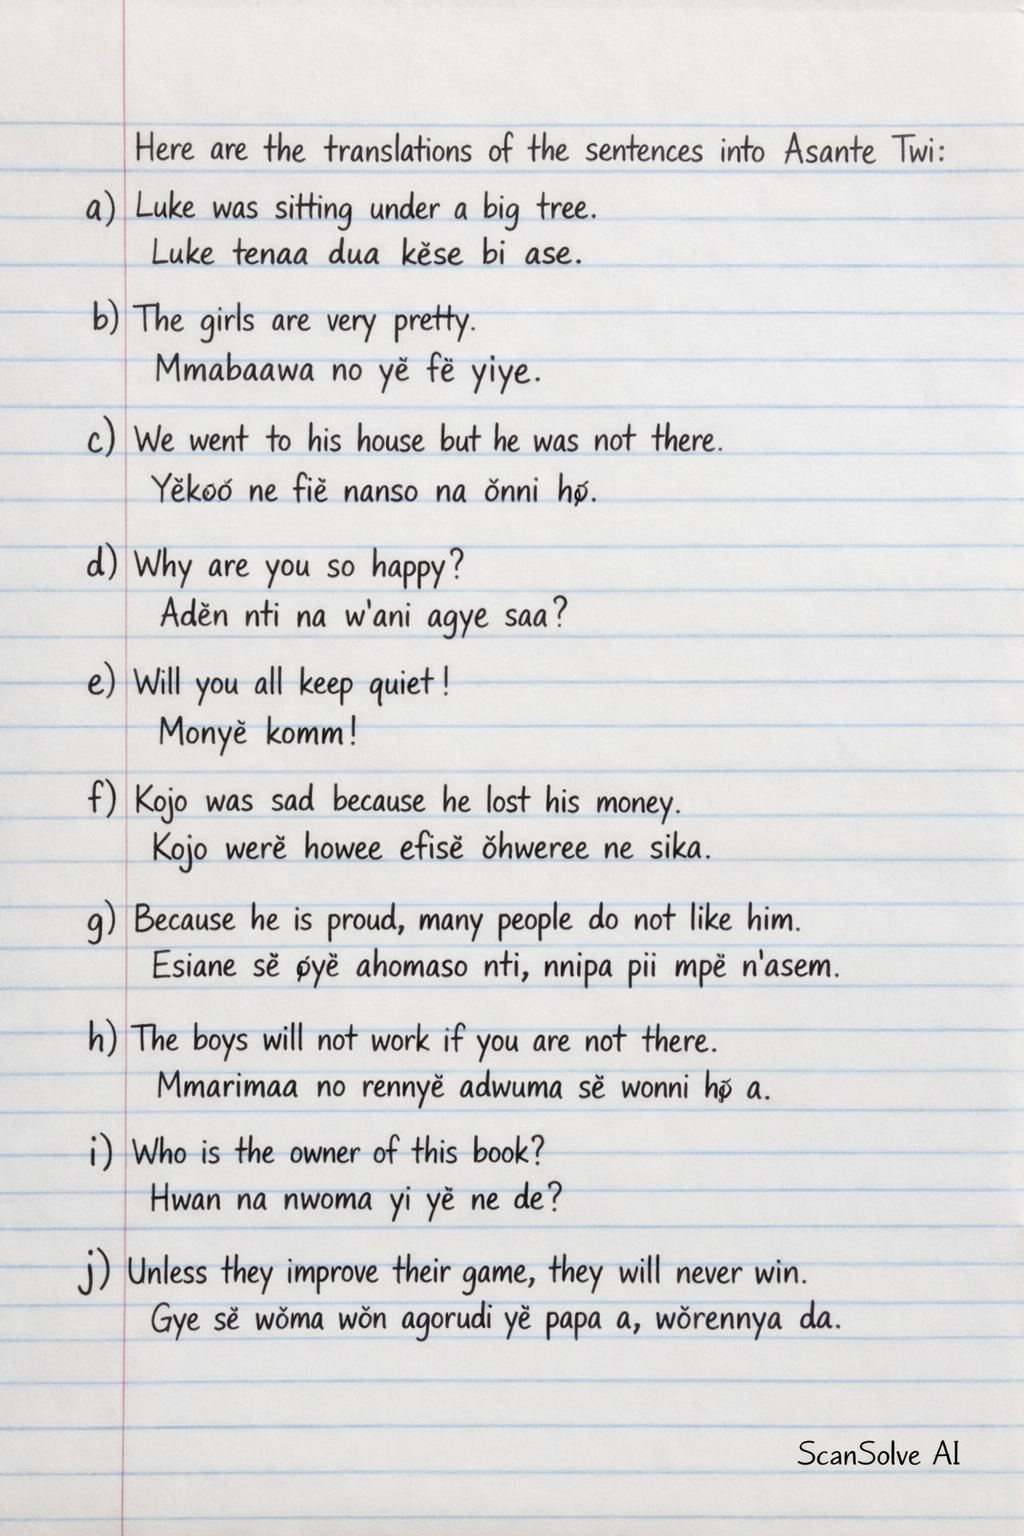 Here are the translations of the sentences into Asante Twi:
a) Luke was sitting under a big tree.
Luke tenaa dua kĕse bi ase.
b) The girls are very pretty.
Mmabaawa no yĕ fĕ yiye.
c) We went to his house but he was not there.
Yĕkoó ne fiĕ nanso na ŏnni hø̆.
d) Why are you so happy?
Adĕn nti na w'ani agye saa?
e) Will you all keep quiet!
Monyĕ komm!
f) Kojo was sad because he lost his money.
Kojo werĕ howee efisĕ ŏhweree ne sika.
g) Because he is proud, many people do not like him.
Esiane sĕ øyĕ ahomaso nti, nnipa pii mpĕ n'asem.
h) The boys will not work if you are not there.
Mmarimaa no rennyĕ adwuma sĕ wonni hø̆ a.
i) Who is the owner of this book?
Hwan na nwoma yi yĕ ne de?
j) Unless they improve their game, they will never win.
Gye sĕ wŏma wŏn agorudi yĕ papa a, wŏrennya da.
ScanSolve AI